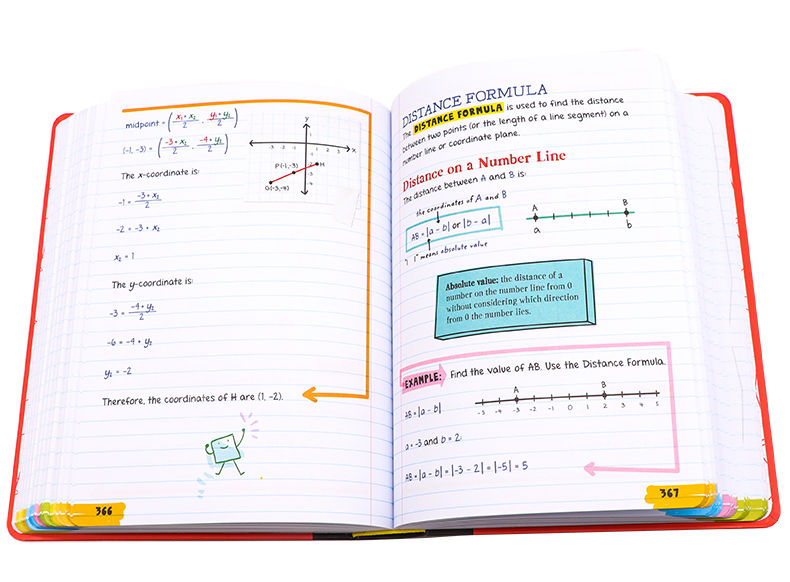 midpoint = (x₁ + x₂ / 2 , y₁ + y₂ / 2)
(-1, -3) = (-3 + x₂ / 2 , -4 + y₂ / 2)
The x-coordinate is:
-1 = -3 + x₂ / 2
-2 = -3 + x₂
x₂ = 1
The y-coordinate is:
-3 = -4 + y₂ / 2
-6 = -4 + y₂
y₂ = -2
Therefore, the coordinates of H are (1, -2).
y
x
-3 -2 -1 1 2 3
P(-1,-3)
H
G(-3,-4)
366
DISTANCE FORMULA
The DISTANCE FORMULA is used to find the distance
between two points (or the length of a line segment) on a
number line or coordinate plane.
Distance on a Number Line
The distance between A and B is:
the coordinates of A and B
AB = |a - b| or |b - a|
"| |" means absolute value
A B
a b
Absolute value: the distance of a
number on the number line from 0
without considering which direction
from 0 the number lies.
EXAMPLE: Find the value of AB. Use the Distance Formula.
A B
-5 -4 -3 -2 -1 0 1 2 3 4 5
AB = |a - b|
a = -3 and b = 2:
AB = |a - b| = |-3 - 2| = |-5| = 5
367